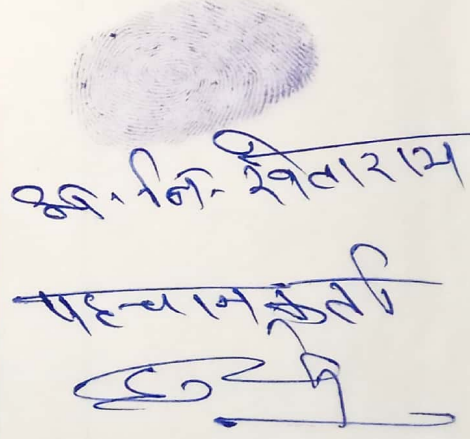 अ. नि. खेताराम
पहचानकर्ता